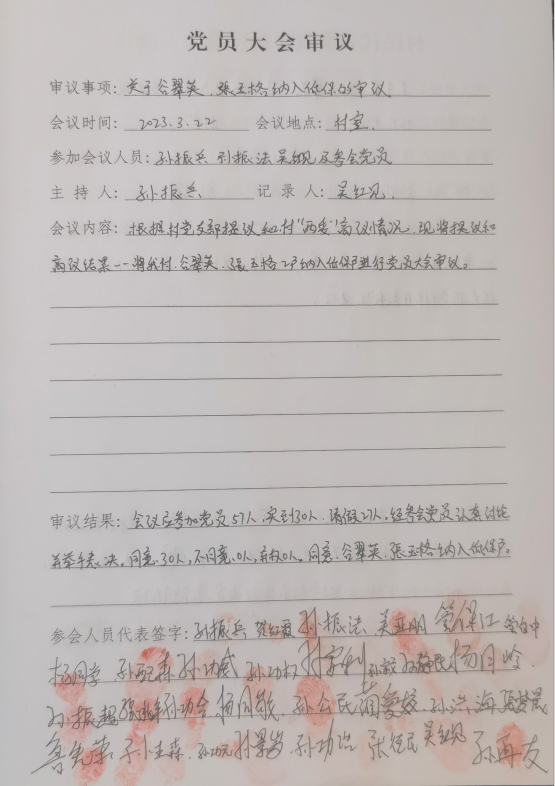 党员大会审议
审议事项：关于谷翠英、张玉格纳入低保的审议
会议时间： 2023.3.22 会议地点：村室
参加会议人员：孙振兵 孙振法 吴红见及参会党员
主持人：孙振兵 记录人：吴红见
会议内容：根据村党支部提议和村“两委”商议情况，现将提议和
商议结果--将我村谷翠英、张玉格2户纳入低保户进行党员大会审议。
审议结果：会议应参加党员57人，实到30人，请假27人，经参会党员认真讨论
并举手表决，同意30人，不同意0人，弃权0人。同意谷翠英、张玉格纳入低保户。
参会人员代表签字：孙振兵 孙振法 吴亚明
杨同学 孙功成 杨同岭
孙振超 孙功会 杨同敏 孙公民 孙洪海
鲁先荣 吴红见 孙再友